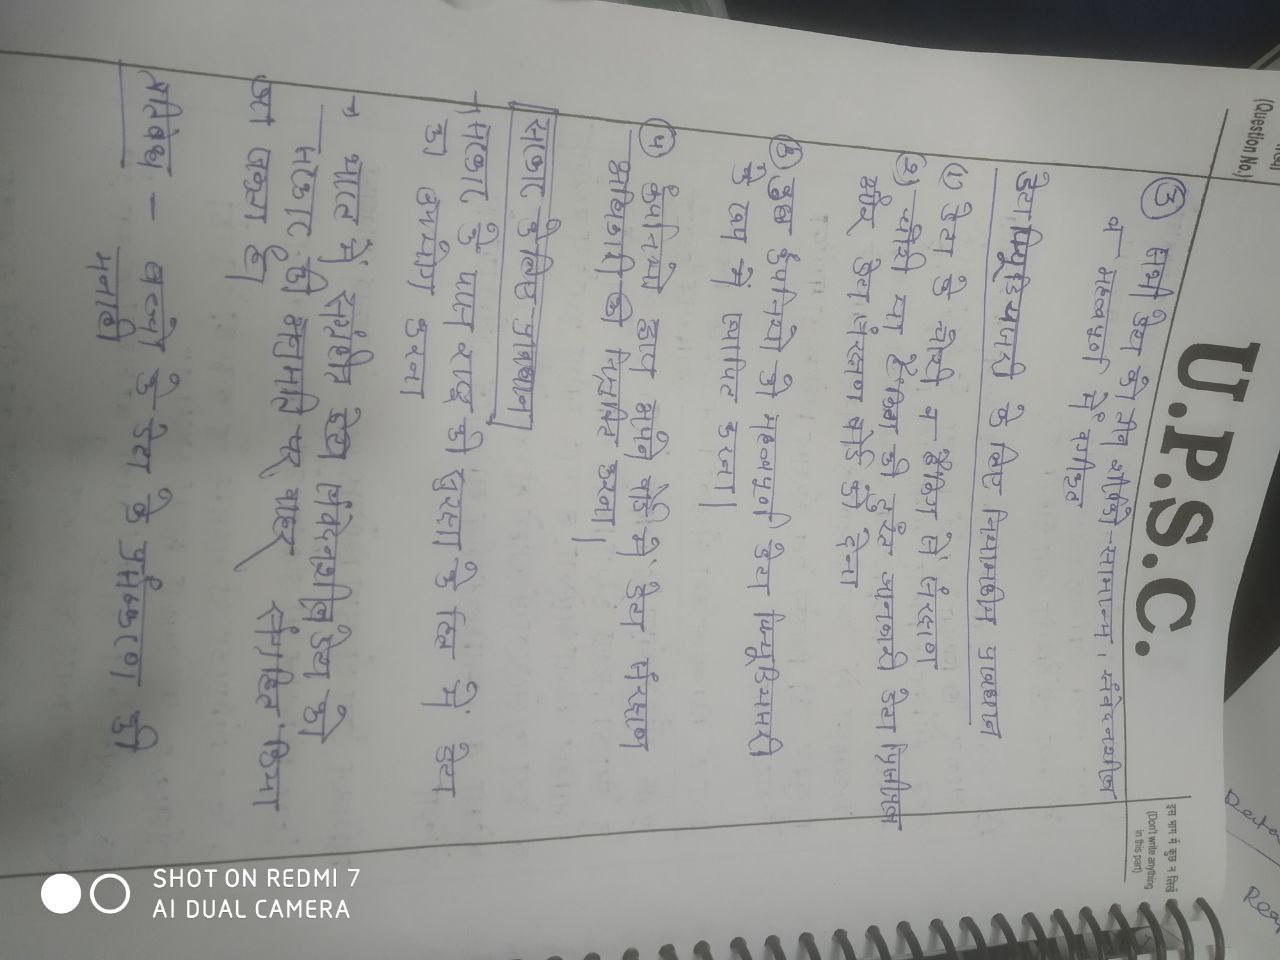 (Question No.)
U.P.S.C.
इस भाग में कुछ न लिखें
(Don't write anything
in this part)
③ सभी डेटा को तीन श्रेणियों - सामान्य, संवेदनशील
व महत्वपूर्ण में वर्गीकृत
डेटा फिड्यूशियरी के लिए नियामकीय प्रावधान
1) डेटा के चोरी व हैकिंग से संरक्षण
2) चोरी या हैकिंग की तुरंत जानकारी डेटा
और डेटा संरक्षण बोर्ड को देना
③ कुछ कंपनियों को महत्वपूर्ण डेटा फिड्यूशियरी
के रूप में स्थापित करना।
④ कंपनियों द्वारा अपने बोर्ड में डेटा संरक्षण
अधिकारी की नियुक्ति करना।
सरकार के लिए प्रावधान
→ सरकार के पास राष्ट्र की सुरक्षा के हित में डेटा
का उपभोग करना
→ भारत में संग्रहित डेटा संवेदनशील डेटा को
सरकार की अनुमति पर बाहर संग्रहित किया
जा सकता है।
प्रतिबंध - बच्चों के डेटा के प्रसंस्करण की
मनाही
Data
SHOT ON REDMI 7
AI DUAL CAMERA